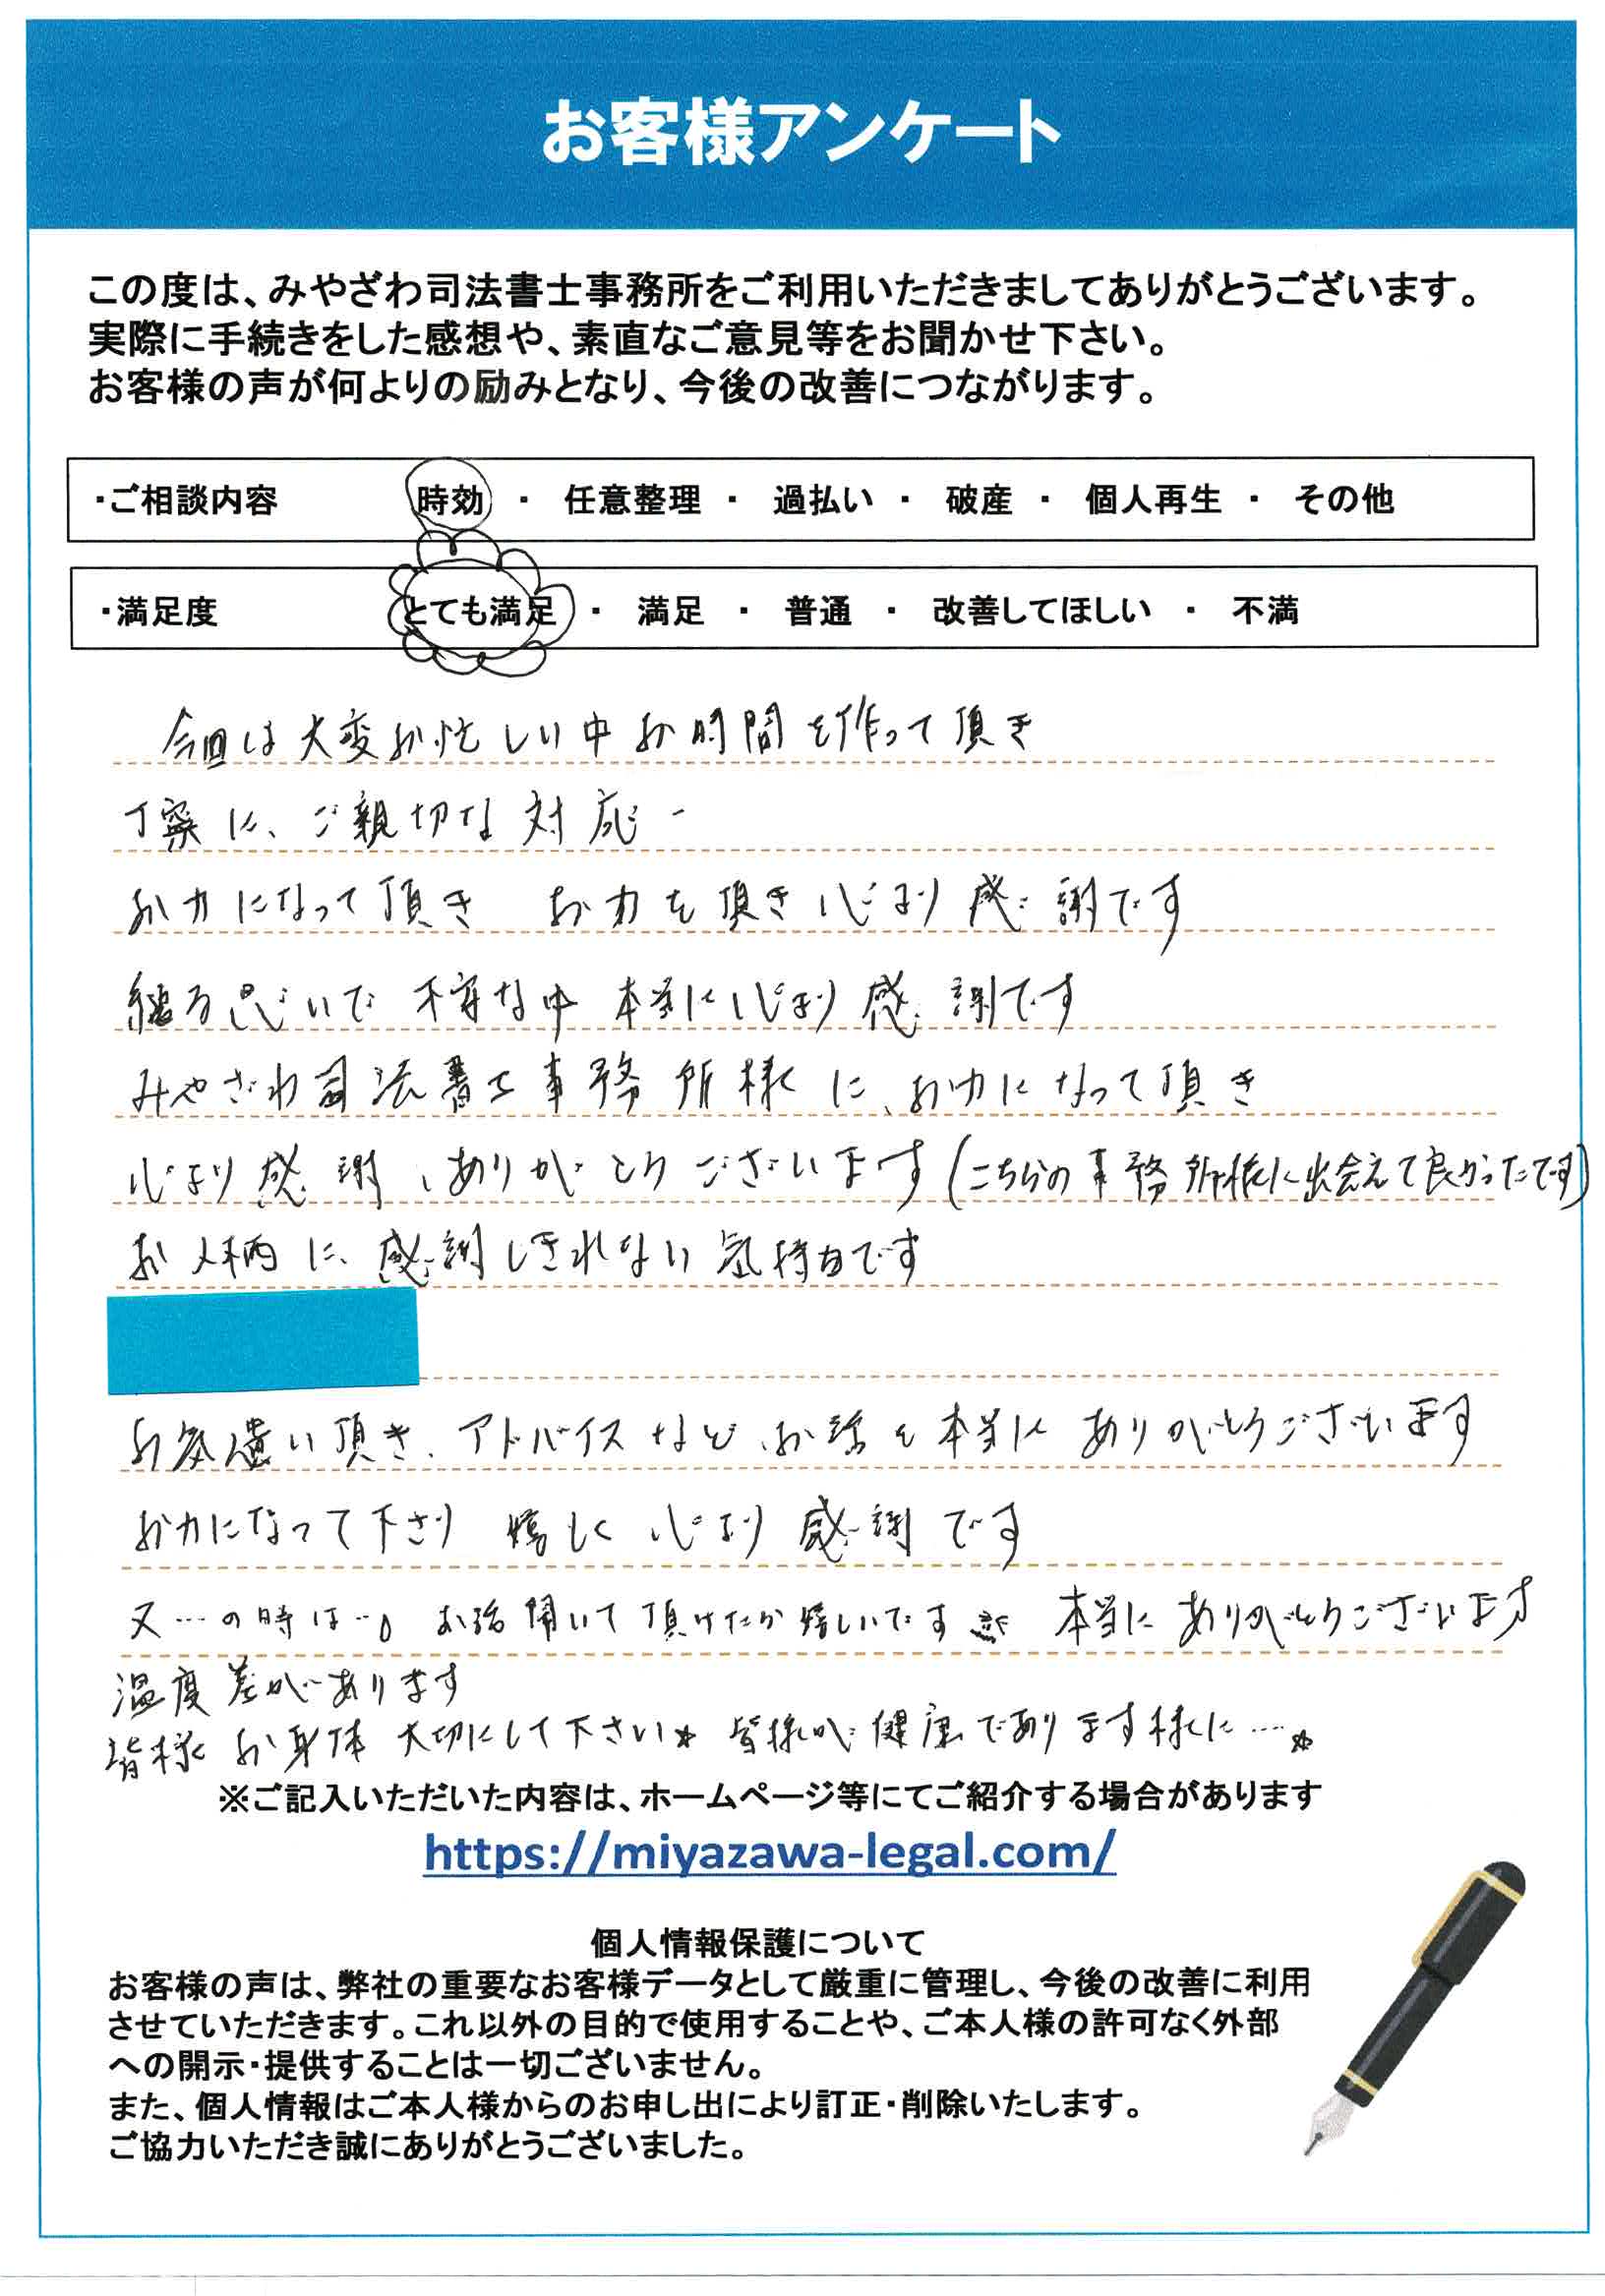 お客様アンケート
この度は、みやざわ司法書士事務所をご利用いただきましてありがとうございます。
実際に手続きをした感想や、素直なご意見等をお聞かせ下さい。
お客様の声が何よりの励みとなり、今後の改善につながります。
・ご相談内容 時効 ・ 任意整理 ・ 過払い ・ 破産 ・ 個人再生 ・ その他
・満足度 とても満足 ・ 満足 ・ 普通 ・ 改善してほしい ・ 不満
今回は大変お忙しい中お時間を作って頂き
丁寧に、ご親切な対応
お力になって頂き お力を頂き心より感謝です
縋る思いで不安な中 本当に心より感謝です
みやざわ司法書士事務所様に、お力になって頂き
心より感謝、ありがとうございます(こちらの事務所様に出会えて良かったです)
お人柄に、感謝しきれない気持ちです
お気遣い頂き、アドバイスなど、お話を本当にありがとうございます
お力になって下さり 嬉しく 心より感謝です
又…の時は…。お話聞いて頂けたら嬉しいです 本当にありがとうございます
温度差があります
皆様お身体大切にして下さい☆ 皆様が健康であります様に…☆
※ご記入いただいた内容は、ホームページ等にてご紹介する場合があります
https://miyazawa-legal.com/
個人情報保護について
お客様の声は、弊社の重要なお客様データとして厳重に管理し、今後の改善に利用
させていただきます。これ以外の目的で使用することや、ご本人様の許可なく外部
への開示・提供することは一切ございません。
また、個人情報はご本人様からのお申し出により訂正・削除いたします。
ご協力いただき誠にありがとうございました。